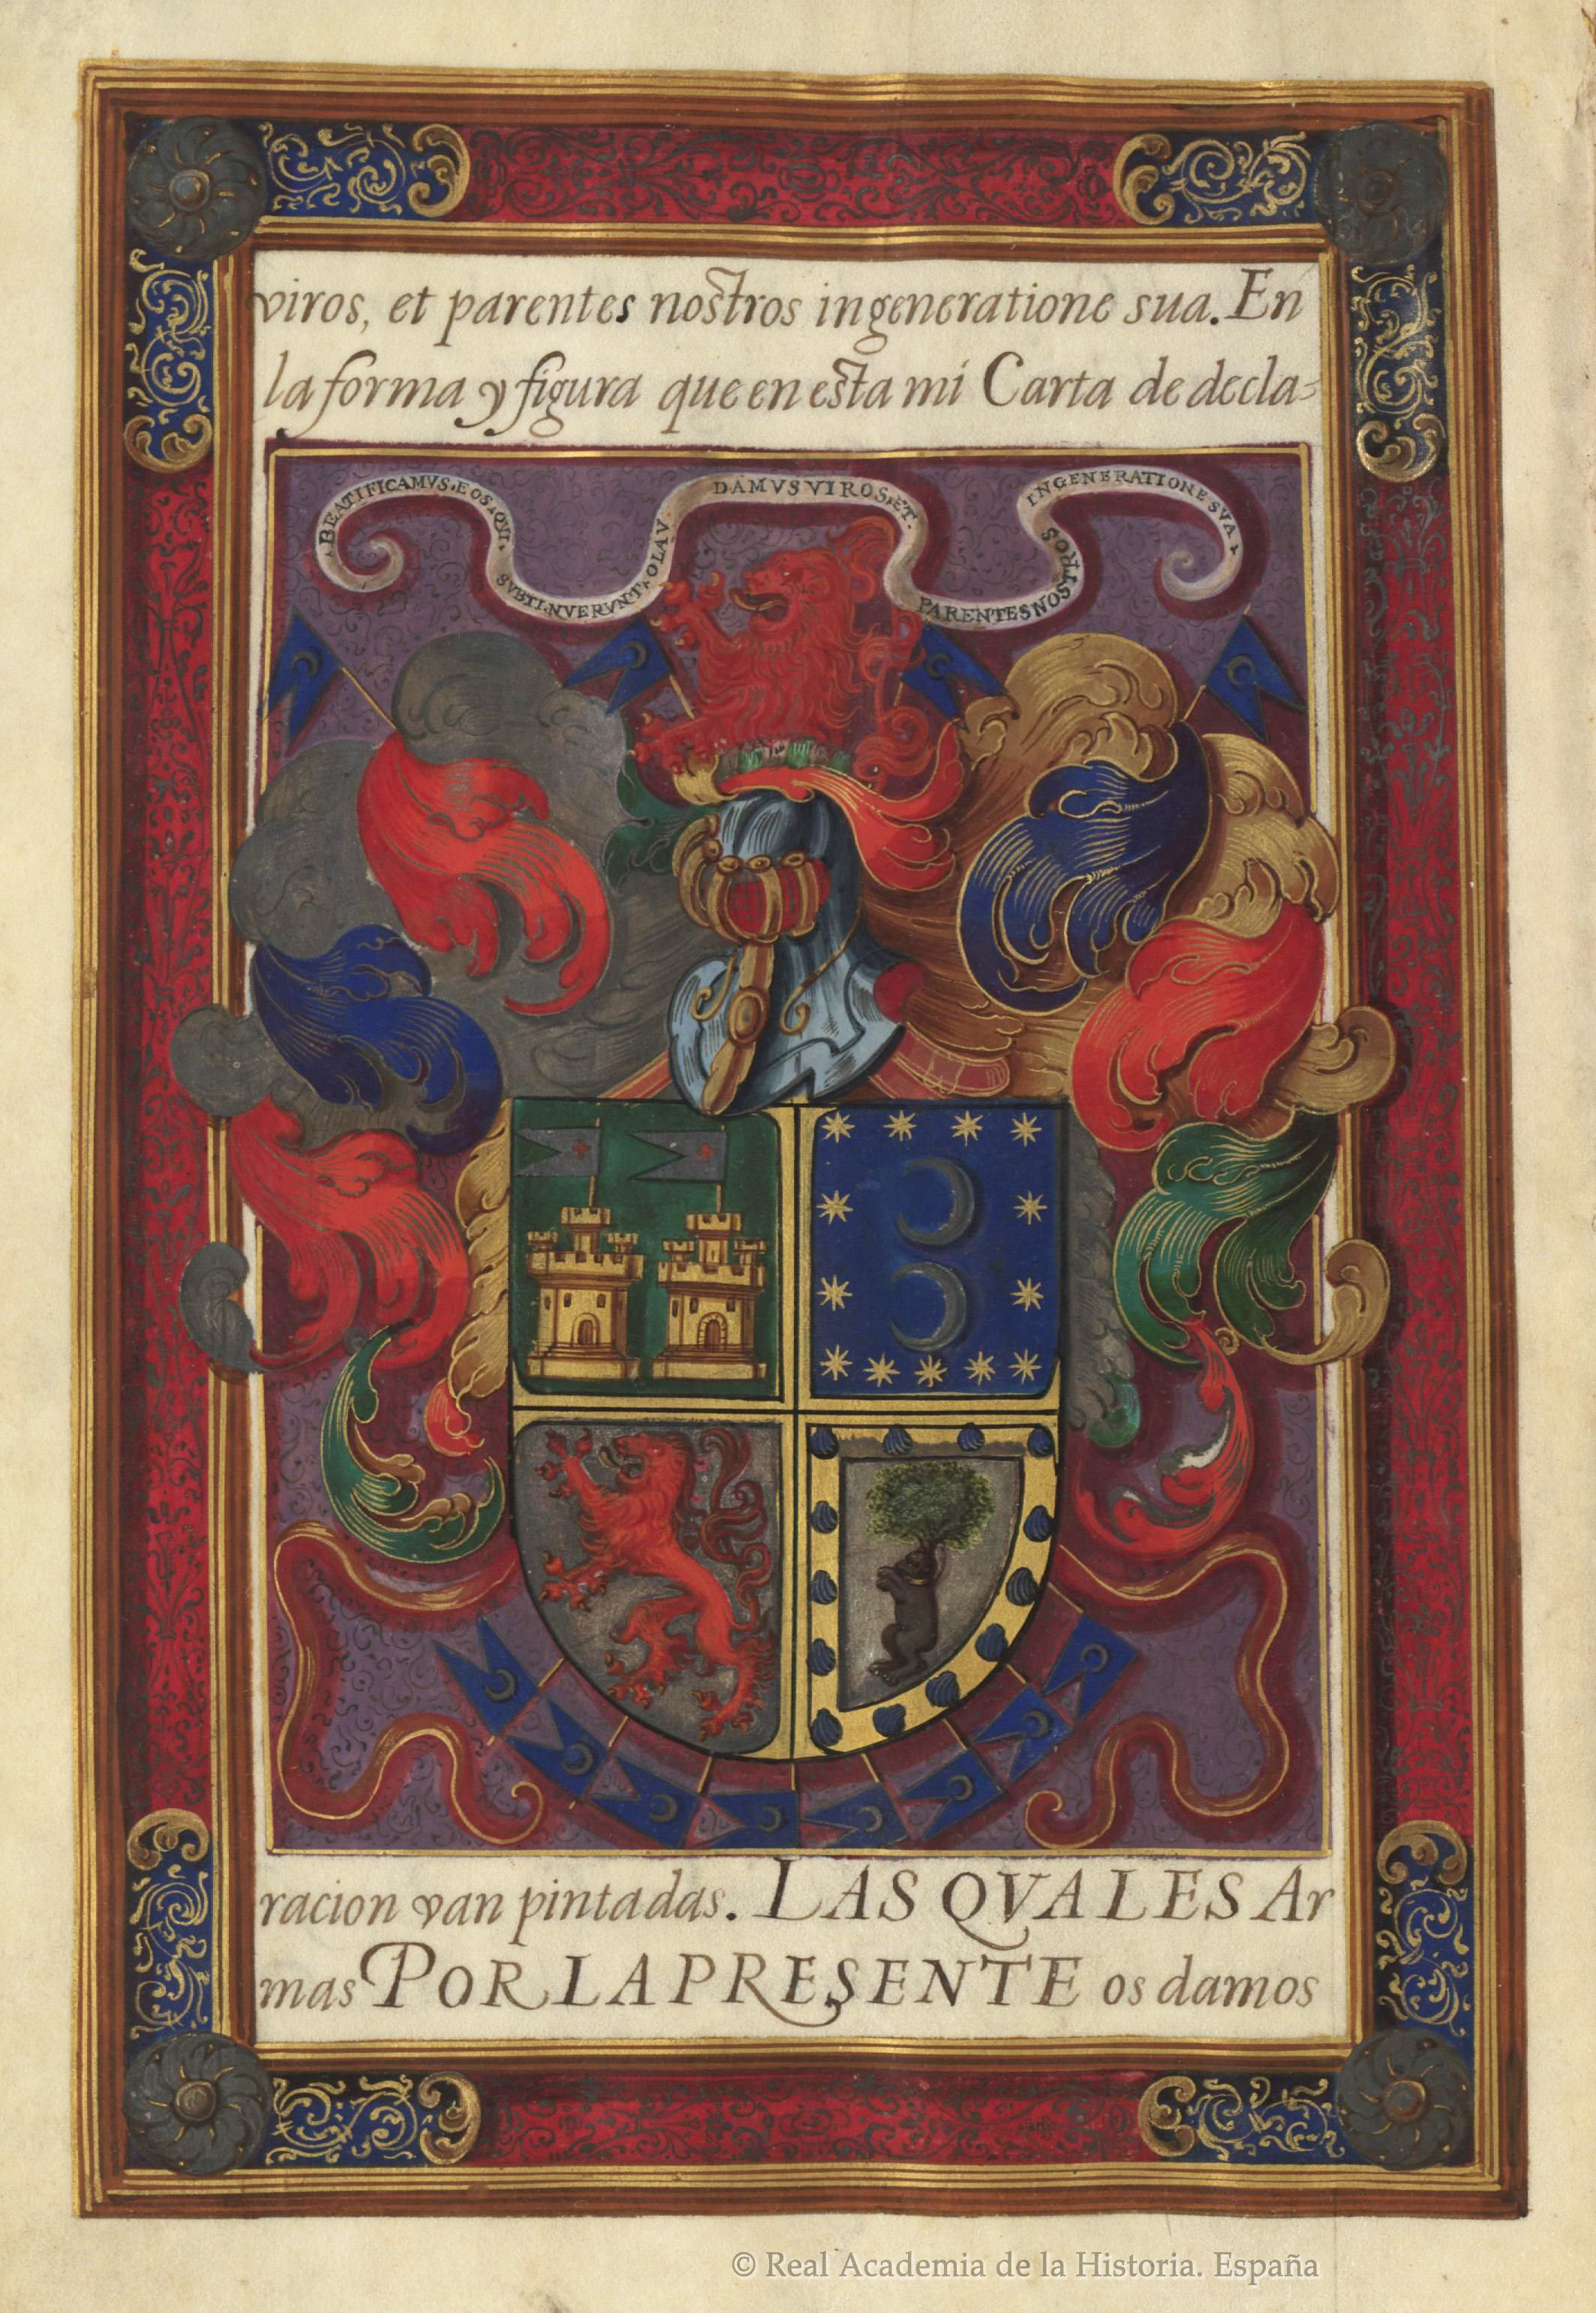 viros, et parentes nostros ingeneratione sua. En
la forma y figura que en esta mi Carta de decla-
BEATIFICAMVS, EOS, QVI, SVBTINVERVNT, OLAV DAMVS VIROS, ET. PARENTES NOSTROS INGENERATIONE SVA.
racion van pintadas. LAS QVALES Ar
mas POR LA PRESENTE os damos
© Real Academia de la Historia. España